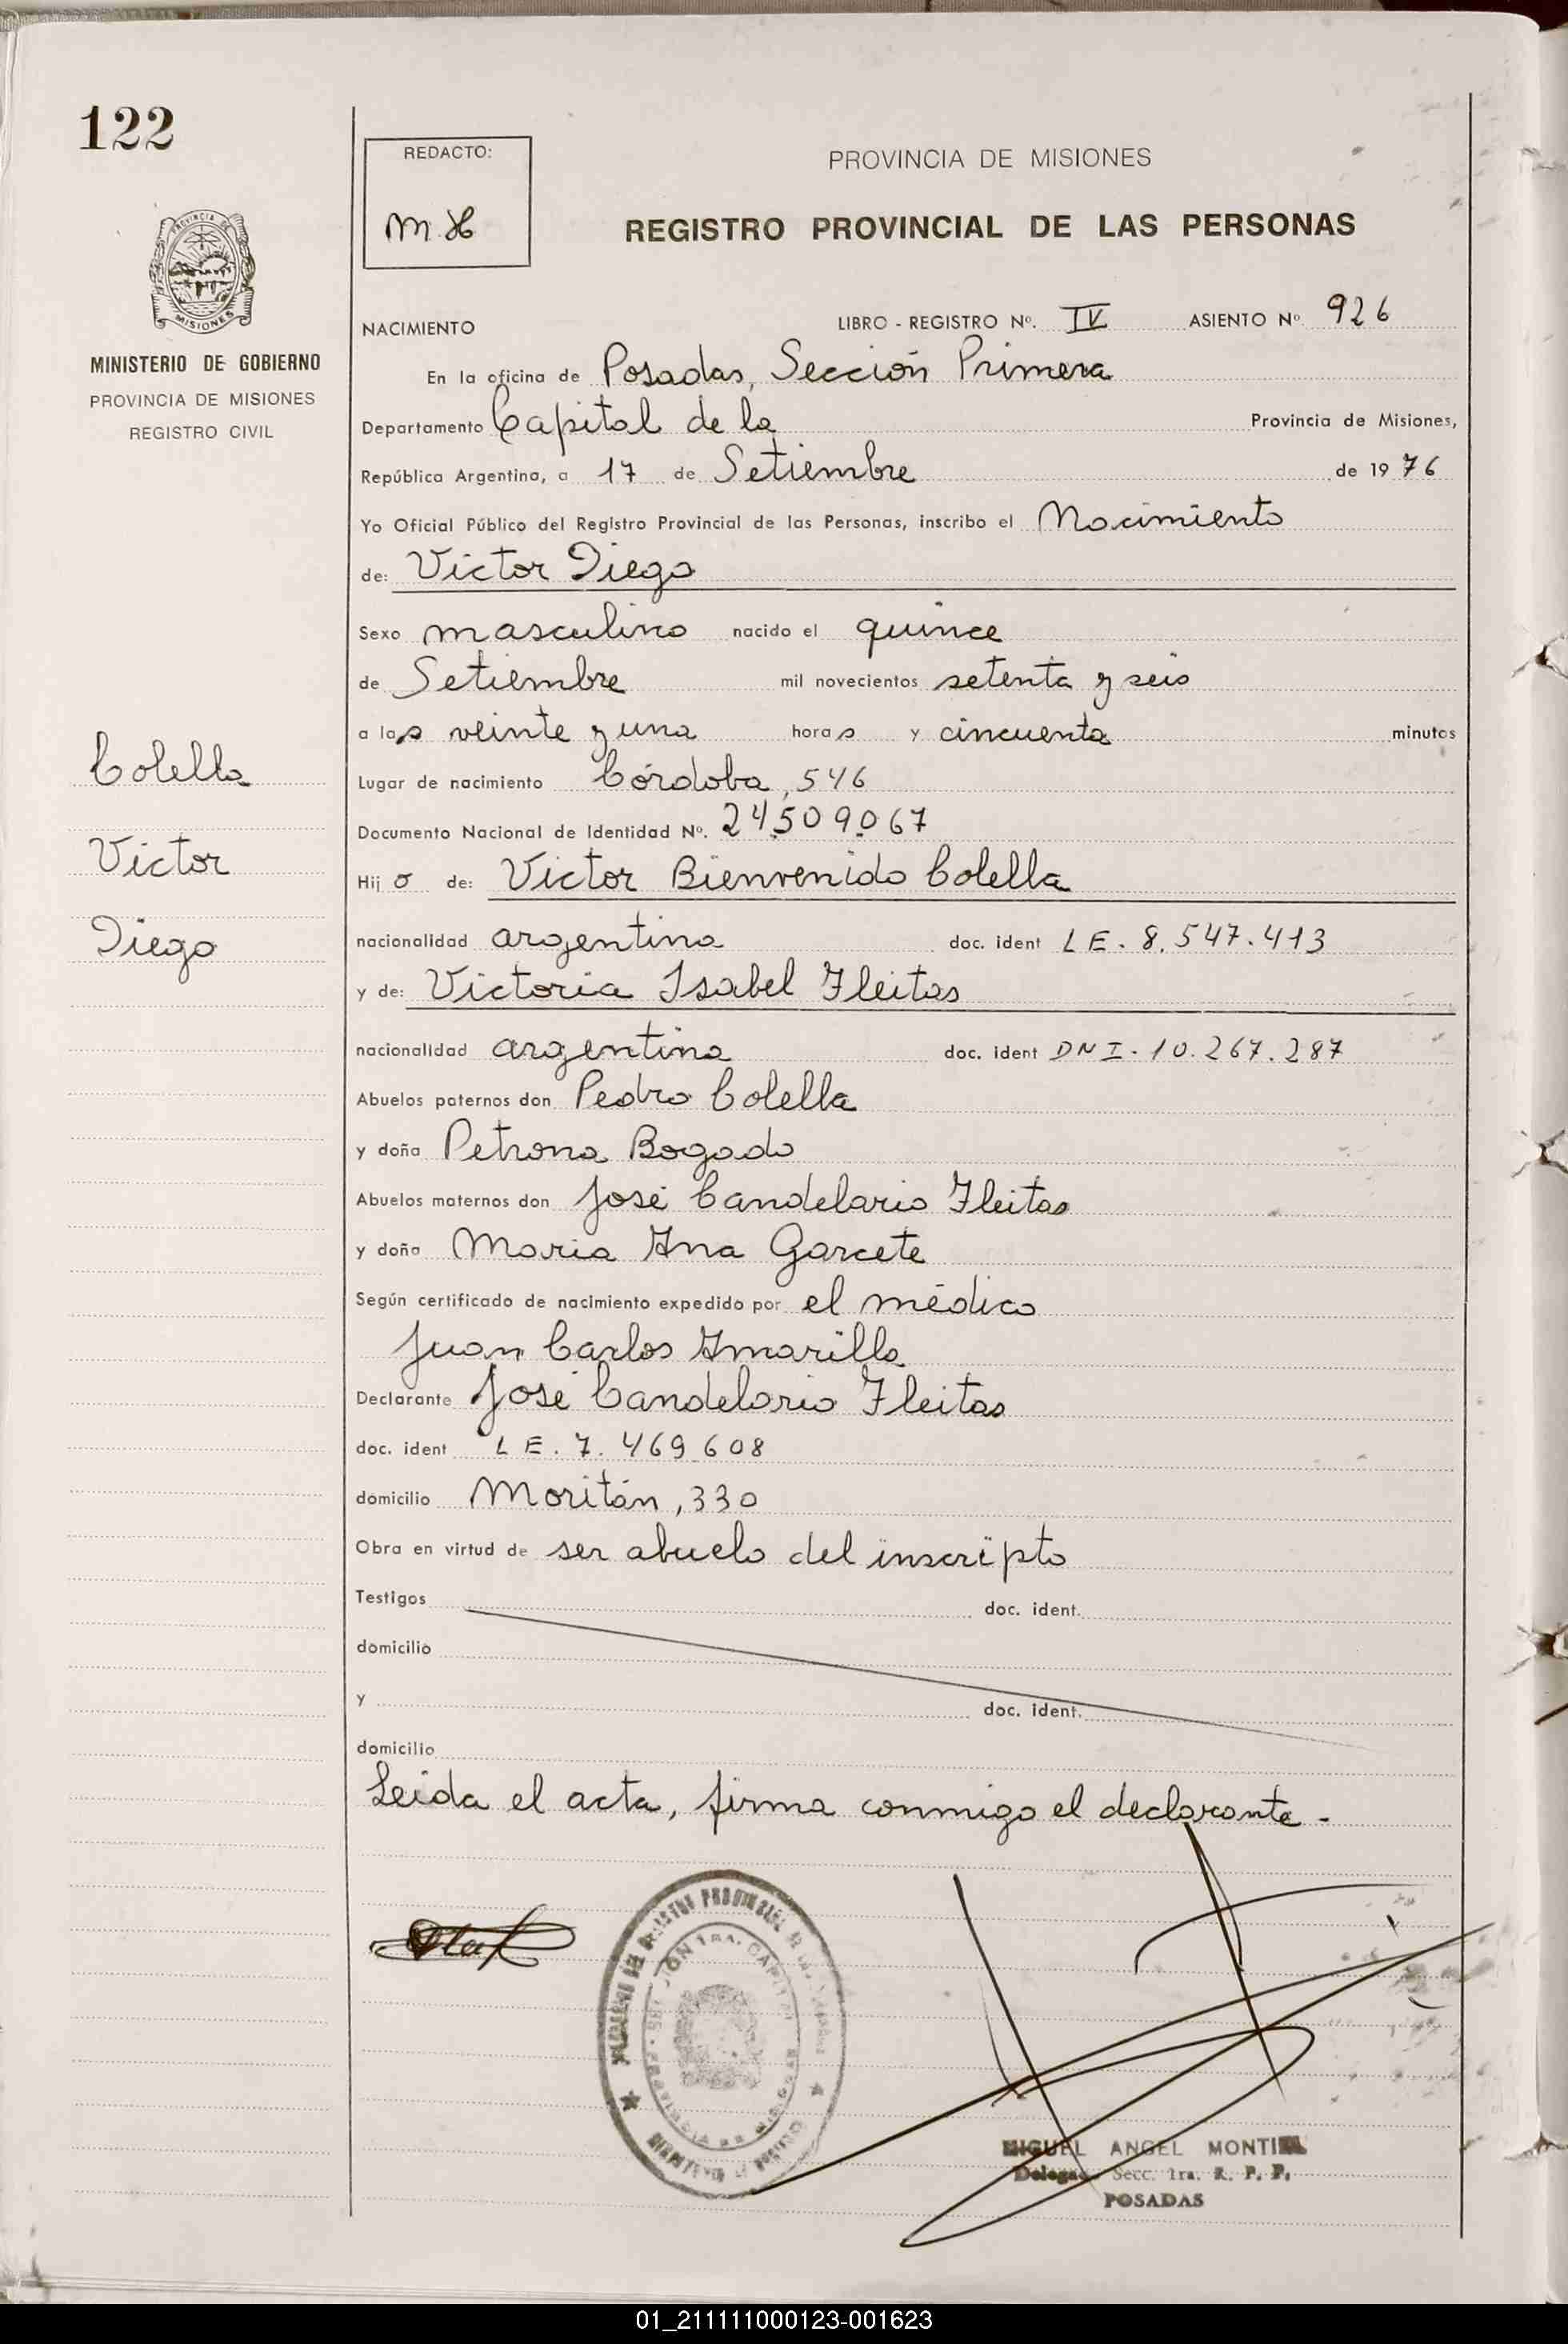 122
REDACTO:
M.H
PROVINCIA DE MISIONES
REGISTRO PROVINCIAL DE LAS PERSONAS
PROVINCIA DE
MISIONES
MINISTERIO DE GOBIERNO
PROVINCIA DE MISIONES
REGISTRO CIVIL
NACIMIENTO LIBRO - REGISTRO Nº. IV ASIENTO Nº 926
En la oficina de Posadas, Sección Primera
Departamento Capital de la Provincia de Misiones,
República Argentina, a 17 de Setiembre de 1976
Yo Oficial Público del Registro Provincial de las Personas, inscribo el Nacimiento
de: Victor Diego
Sexo masculino nacido el quince
de Setiembre mil novecientos setenta y seis
a las veinte y una horas y cincuenta minutos
Lugar de nacimiento Córdoba, 546
Documento Nacional de Identidad Nº. 24.509.067
Hijo de: Victor Bienvenido Colella
nacionalidad argentina doc. ident LE. 8.547.413
y de: Victoria Isabel Fleitas
nacionalidad argentina doc. ident DNI. 10.267.287
Abuelos paternos don Pedro Colella
y doña Petrona Bogado
Abuelos maternos don José Candelario Fleitas
y doña Maria Ana Garcete
Según certificado de nacimiento expedido por el médico
Juan Carlos Amarilla
Declarante José Candelario Fleitas
doc. ident LE. 7.469.608
domicilio Moritán, 330
Obra en virtud de ser abuelo del inscripto
Testigos doc. ident.
domicilio
y doc. ident.
domicilio
Leida el acta, firma conmigo el declarante.-
Colella
Victor
Diego
MIGUEL ANGEL MONTIEL
Delegado Secc. 1ra. R. P. P.
POSADAS
01_211111000123-001623